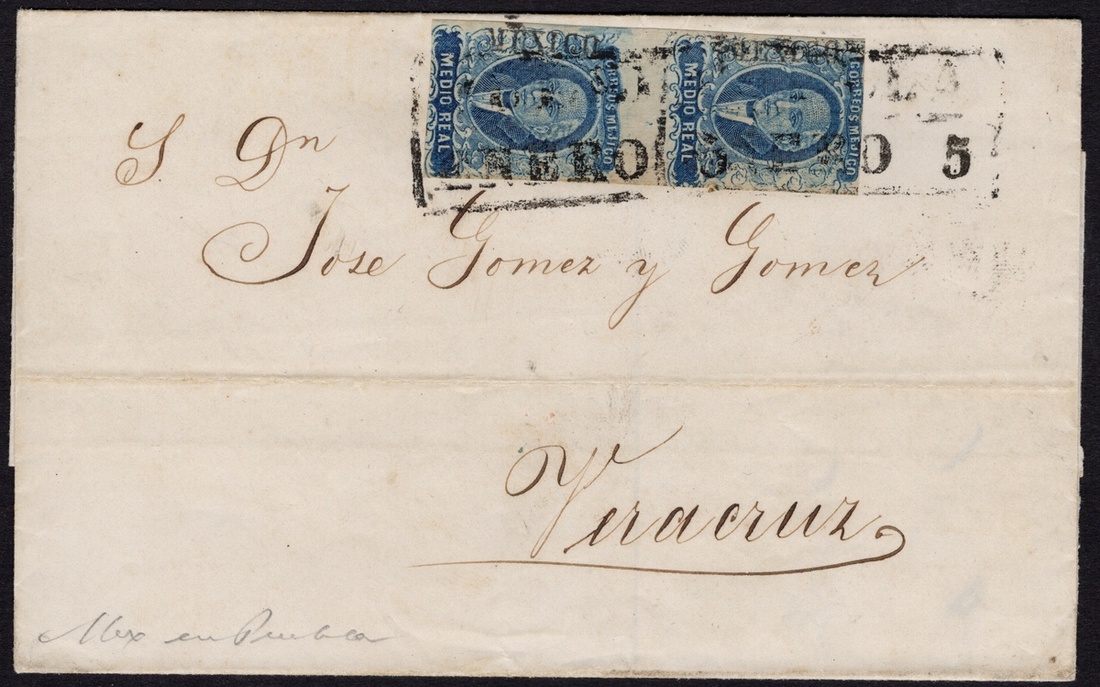 MEXICO MEXICO
CORREOS MEJICO
MEDIO REAL
CORREOS MEJICO
MEDIO REAL
ENERO 5 ERO 5
S. Dn
Jose Gomez y Gomez
Veracruz
Mex en Puebla